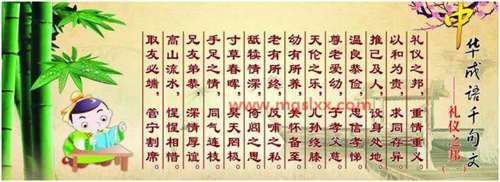 中华成语千句文
——礼仪之邦
礼仪之邦，重情重义
以和为贵，求同存异
推己及人，设身处地
温良恭俭，忠信孝悌
尊老爱幼，子孝父慈
天伦之乐，儿孙绕膝
幼有所养，关怀备至
老有所终，
舐犊情深，倚闾之思
寸草春晖，昊天罔极
手足之情，同气连枝
兄友弟恭，深情厚谊
高山流水，惺惺相惜
取友必端，管宁割席
www.mgslxx.com